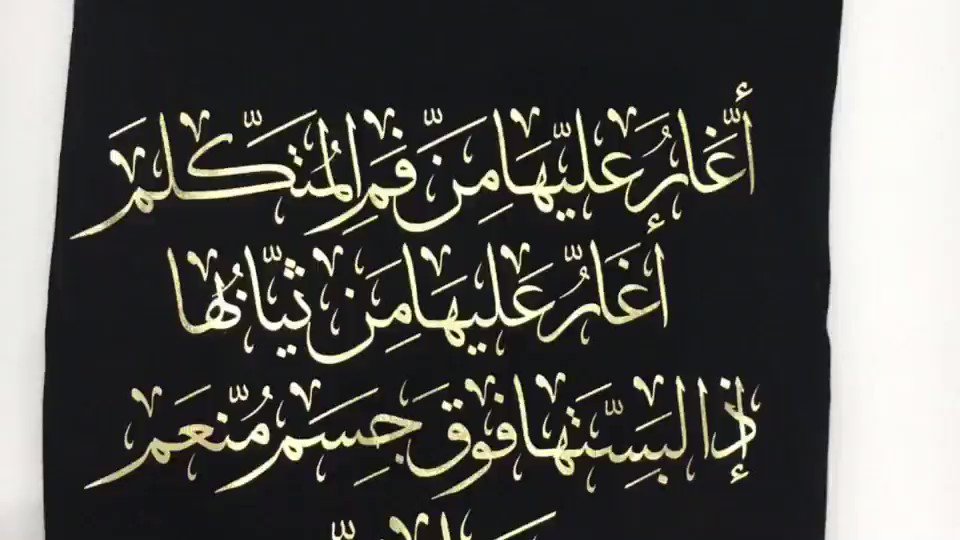 أغار عليها من فم المتكلم
أغار عليها من ثيابها
إذا لبستها فوق جسم منعم